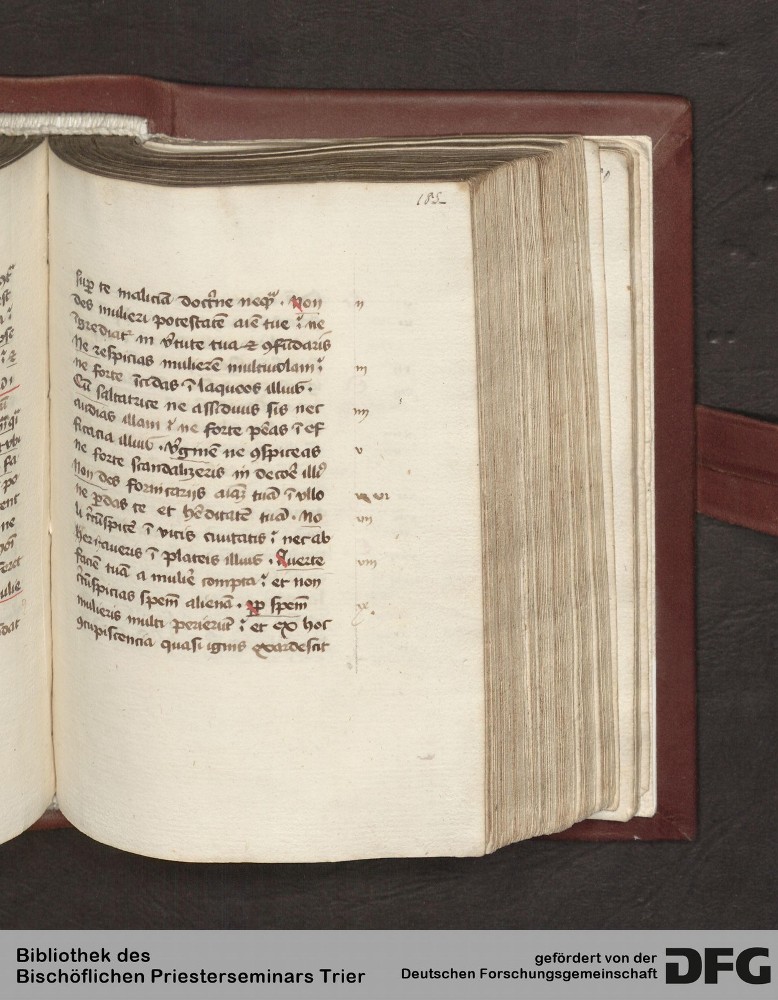 185
sup̄ te maliciā doctͥne neqᷓ. Non
des mulieri potestatē aīe tue ⁊ ne
īgrediat᷑ in v̓tute tua ⁊ ꝯfūdaris
Ne respicias mulierē multiuolam ⁊
ne forte īcidas ī laqueos illius.
Cū saltatrice ne assiduus sis nec
audias illam ⁊ ne forte peas ī ef
ficacia illius. v̓ginē ne ꝯspiceas
ne forte scandalizeris in decoͤ illi᷒
Non des fornicariis aīaꝫ tuā ī ullo
ne ꝑdas te et hēditatē tuā. No
li c̄cūspicē ī vicis ciuitatis ⁊ nec ab
herraueris ī plateis illius. Auerte
faciē tuā a muliē compta ⁊ et non
c̄cūspicias spem̄ alienā. ꝓp̄ spem̄
mulieris multi perierūt ⁊ et ex hoc
ꝯcupiscencia quasi ignis exardescit
ii
iii
iiii
v
vi
vii
viii
ix
Bibliothek des
Bischöflichen Priesterseminars Trier
gefördert von der
Deutschen Forschungsgemeinschaft
DFG